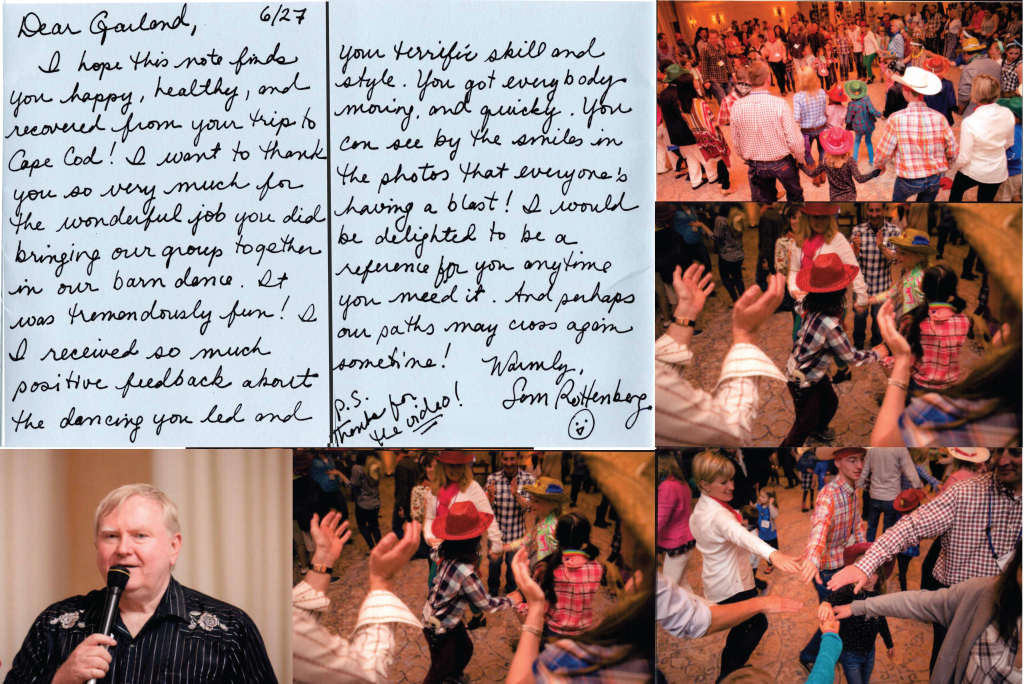 Dear Garland,
6/27
I hope this note finds
you happy, healthy, and
recovered from your trip to
Cape Cod! I want to thank
you so very much for
the wonderful job you did
bringing our group together
in our barn dance. It
was tremendously fun! I
I received so much
positive feedback about
the dancing you led and
your terrific skill and
style. You got everybody
moving, and quicky. You
can see by the smiles in
the photos that everyone's
having a blast! I would
be delighted to be a
reference for you anytime
you need it. And perhaps
our paths may cross again
sometime!
Warmly,
Sam Rottenberg
P.S.
thanks for
the video!